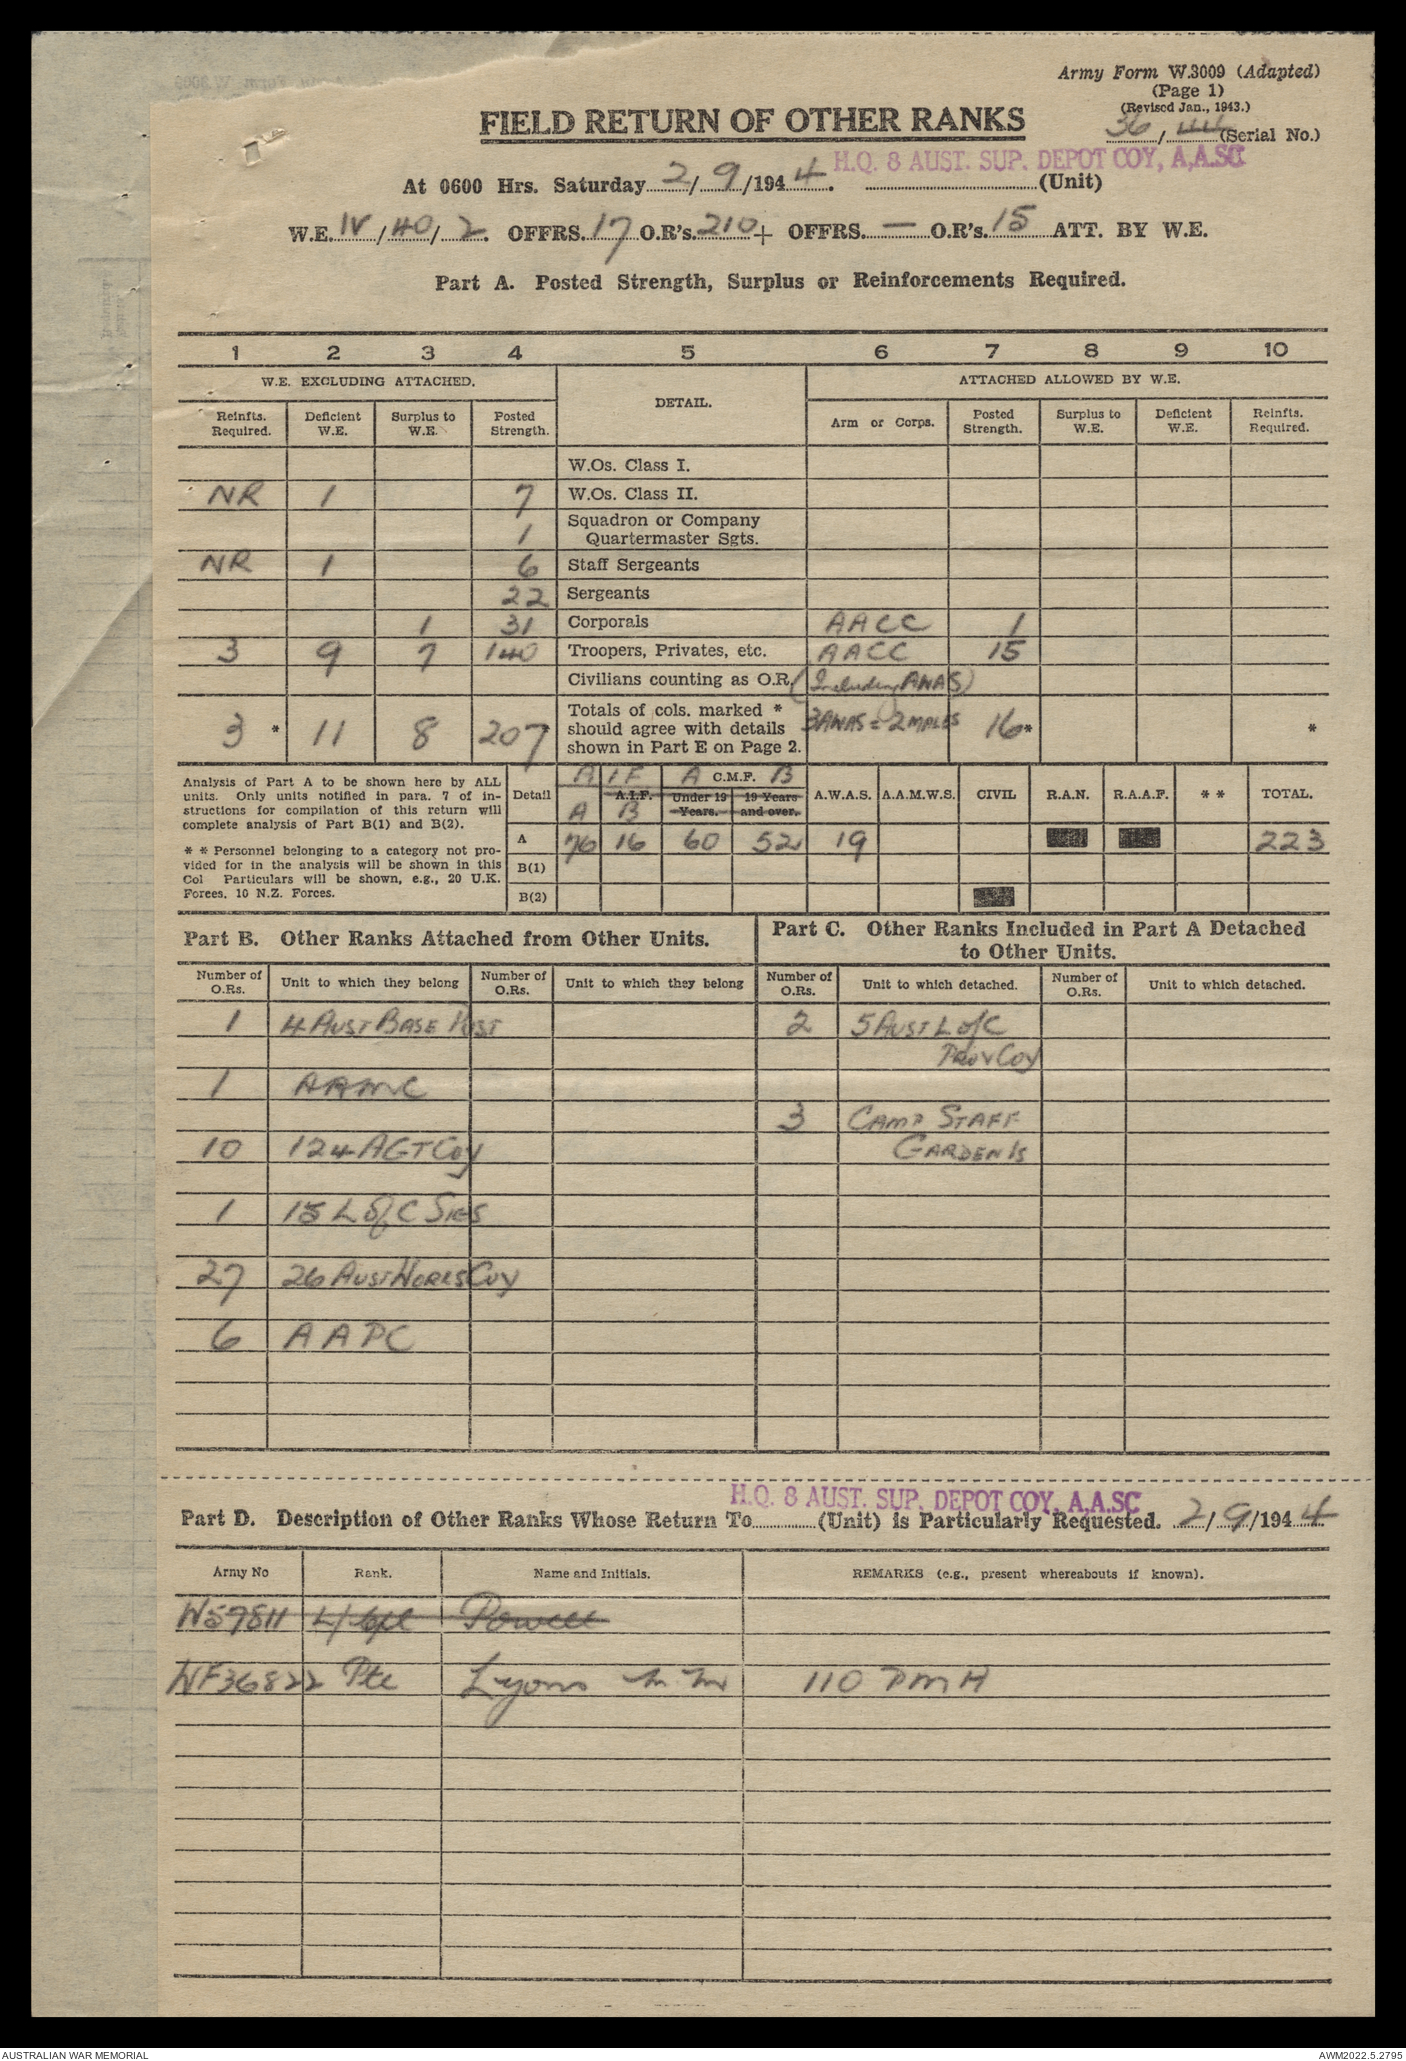 Army Form W.3009 (Adapted)
(Page 1)
(Revised Jan., 1943.)
FIELD RETURN OF OTHER RANKS
36/44 (Serial No.)
H.Q. 8 AUST. SUP. DEPOT COY, A.A.SC
At 0600 Hrs. Saturday 2/9/1944. (Unit)
W.E. IV/40/2. OFFRS. 17 O.R's. 210 + OFFRS. — O.R's. 15 ATT. BY W.E.
Part A. Posted Strength, Surplus or Reinforcements Required.
1 2 3 4 5 6 7 8 9 10
W.E. EXCLUDING ATTACHED. DETAIL. ATTACHED ALLOWED BY W.E.
Reinfts. Required. Deficient W.E. Surplus to W.E. Posted Strength. Arm or Corps. Posted Strength. Surplus to W.E. Deficient W.E. Reinfts. Required.
W.Os. Class I.
NR 1 7 W.Os. Class II.
1 Squadron or Company Quartermaster Sgts.
NR 1 6 Staff Sergeants
22 Sergeants
1 31 Corporals AACC 1
3 9 7 140 Troopers, Privates, etc. AACC 15
Civilians counting as O.R. (Including AWAS)
3 * 11 8 207 Totals of cols. marked * should agree with details shown in Part E on Page 2. 3 AWAS = 2 MALES 16 * *
Analysis of Part A to be shown here by ALL
units. Only units notified in para. 7 of in-
structions for compilation of this return will
complete analysis of Part B(1) and B(2).
* * Personnel belonging to a category not pro-
vided for in the analysis will be shown in this
Col Particulars will be shown, e.g., 20 U.K.
Forces, 10 N.Z. Forces.
A I F A C.M.F. B
Detail A.I.F. Under 19 Years. 19 Years and over. A.W.A.S. A.A.M.W.S. CIVIL R.A.N. R.A.A.F. * * TOTAL.
A B
A 76 16 60 52 19 223
B(1)
B(2)
Part B. Other Ranks Attached from Other Units.
Part C. Other Ranks Included in Part A Detached
to Other Units.
Number of O.Rs. Unit to which they belong Number of O.Rs. Unit to which they belong Number of O.Rs. Unit to which detached. Number of O.Rs. Unit to which detached.
1 4 AUST BASE POST 2 5 AUST L of C
PROV COY
1 AAMC
3 CAMP STAFF
10 124 AGT COY GARDEN IS
1 15 L of C SIGS
27 26 AUST WORKS COY
6 AAPC
H.Q. 8 AUST. SUP. DEPOT COY, A.A.SC
Part D. Description of Other Ranks Whose Return To (Unit) is Particularly Requested. 2/9/1944
Army No Rank. Name and Initials. REMARKS (e.g., present whereabouts if known).
W57811 L/Cpl Powell
NF36822 Pte Lyons M M 110 PMH
AUSTRALIAN WAR MEMORIAL
AWM2022.5.2795